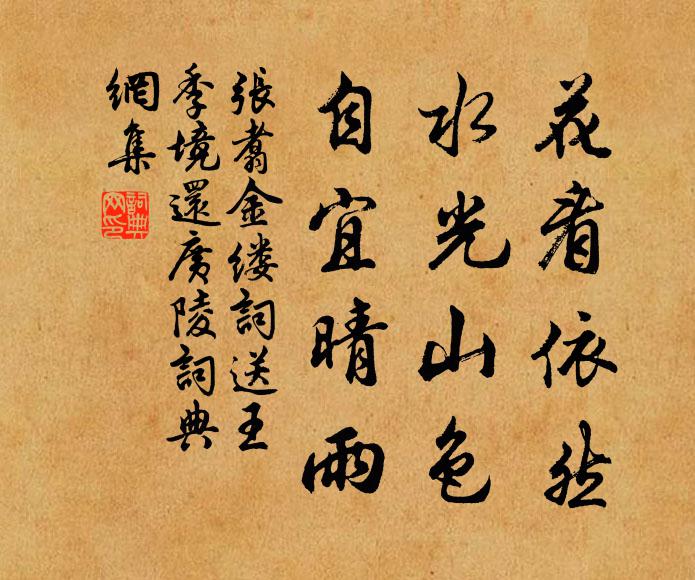 花看依然
水光山色
自宜晴雨
張翥金缕詞送王
季境還廣陵詞典
網集
詞典
网印